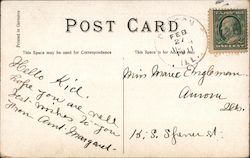 Printed in Germany
POST CARD
This Space may be used for Correspondence
This Space is for
FEB
27
ILL.
Hello Kid.
Hope you are well
Best wishes to you
From Aunt Margaret-
Miss Marie
Aurora
Ills.
S.